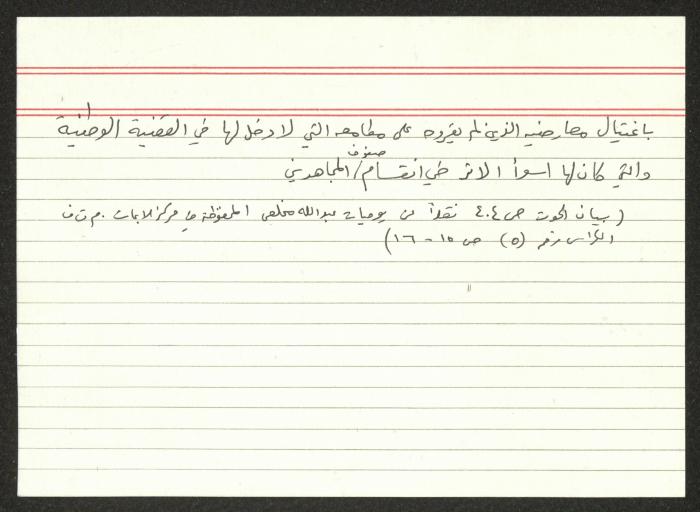 باغتيال معارضيه الذين لم يقروه على مطامعه التي لا دخل لها في القضية الوطنية
والتي كان لها اسوأ الاثر في انقسام صفوف المجاهدين
(بيان الحوت ص ٤٠٤ نقلاً عن يوميات عبدالله مخلص المحفوظة في مركز الابحاث م.ت.ف
الكراس رقم (٥) ص ١٥ - ١٦)